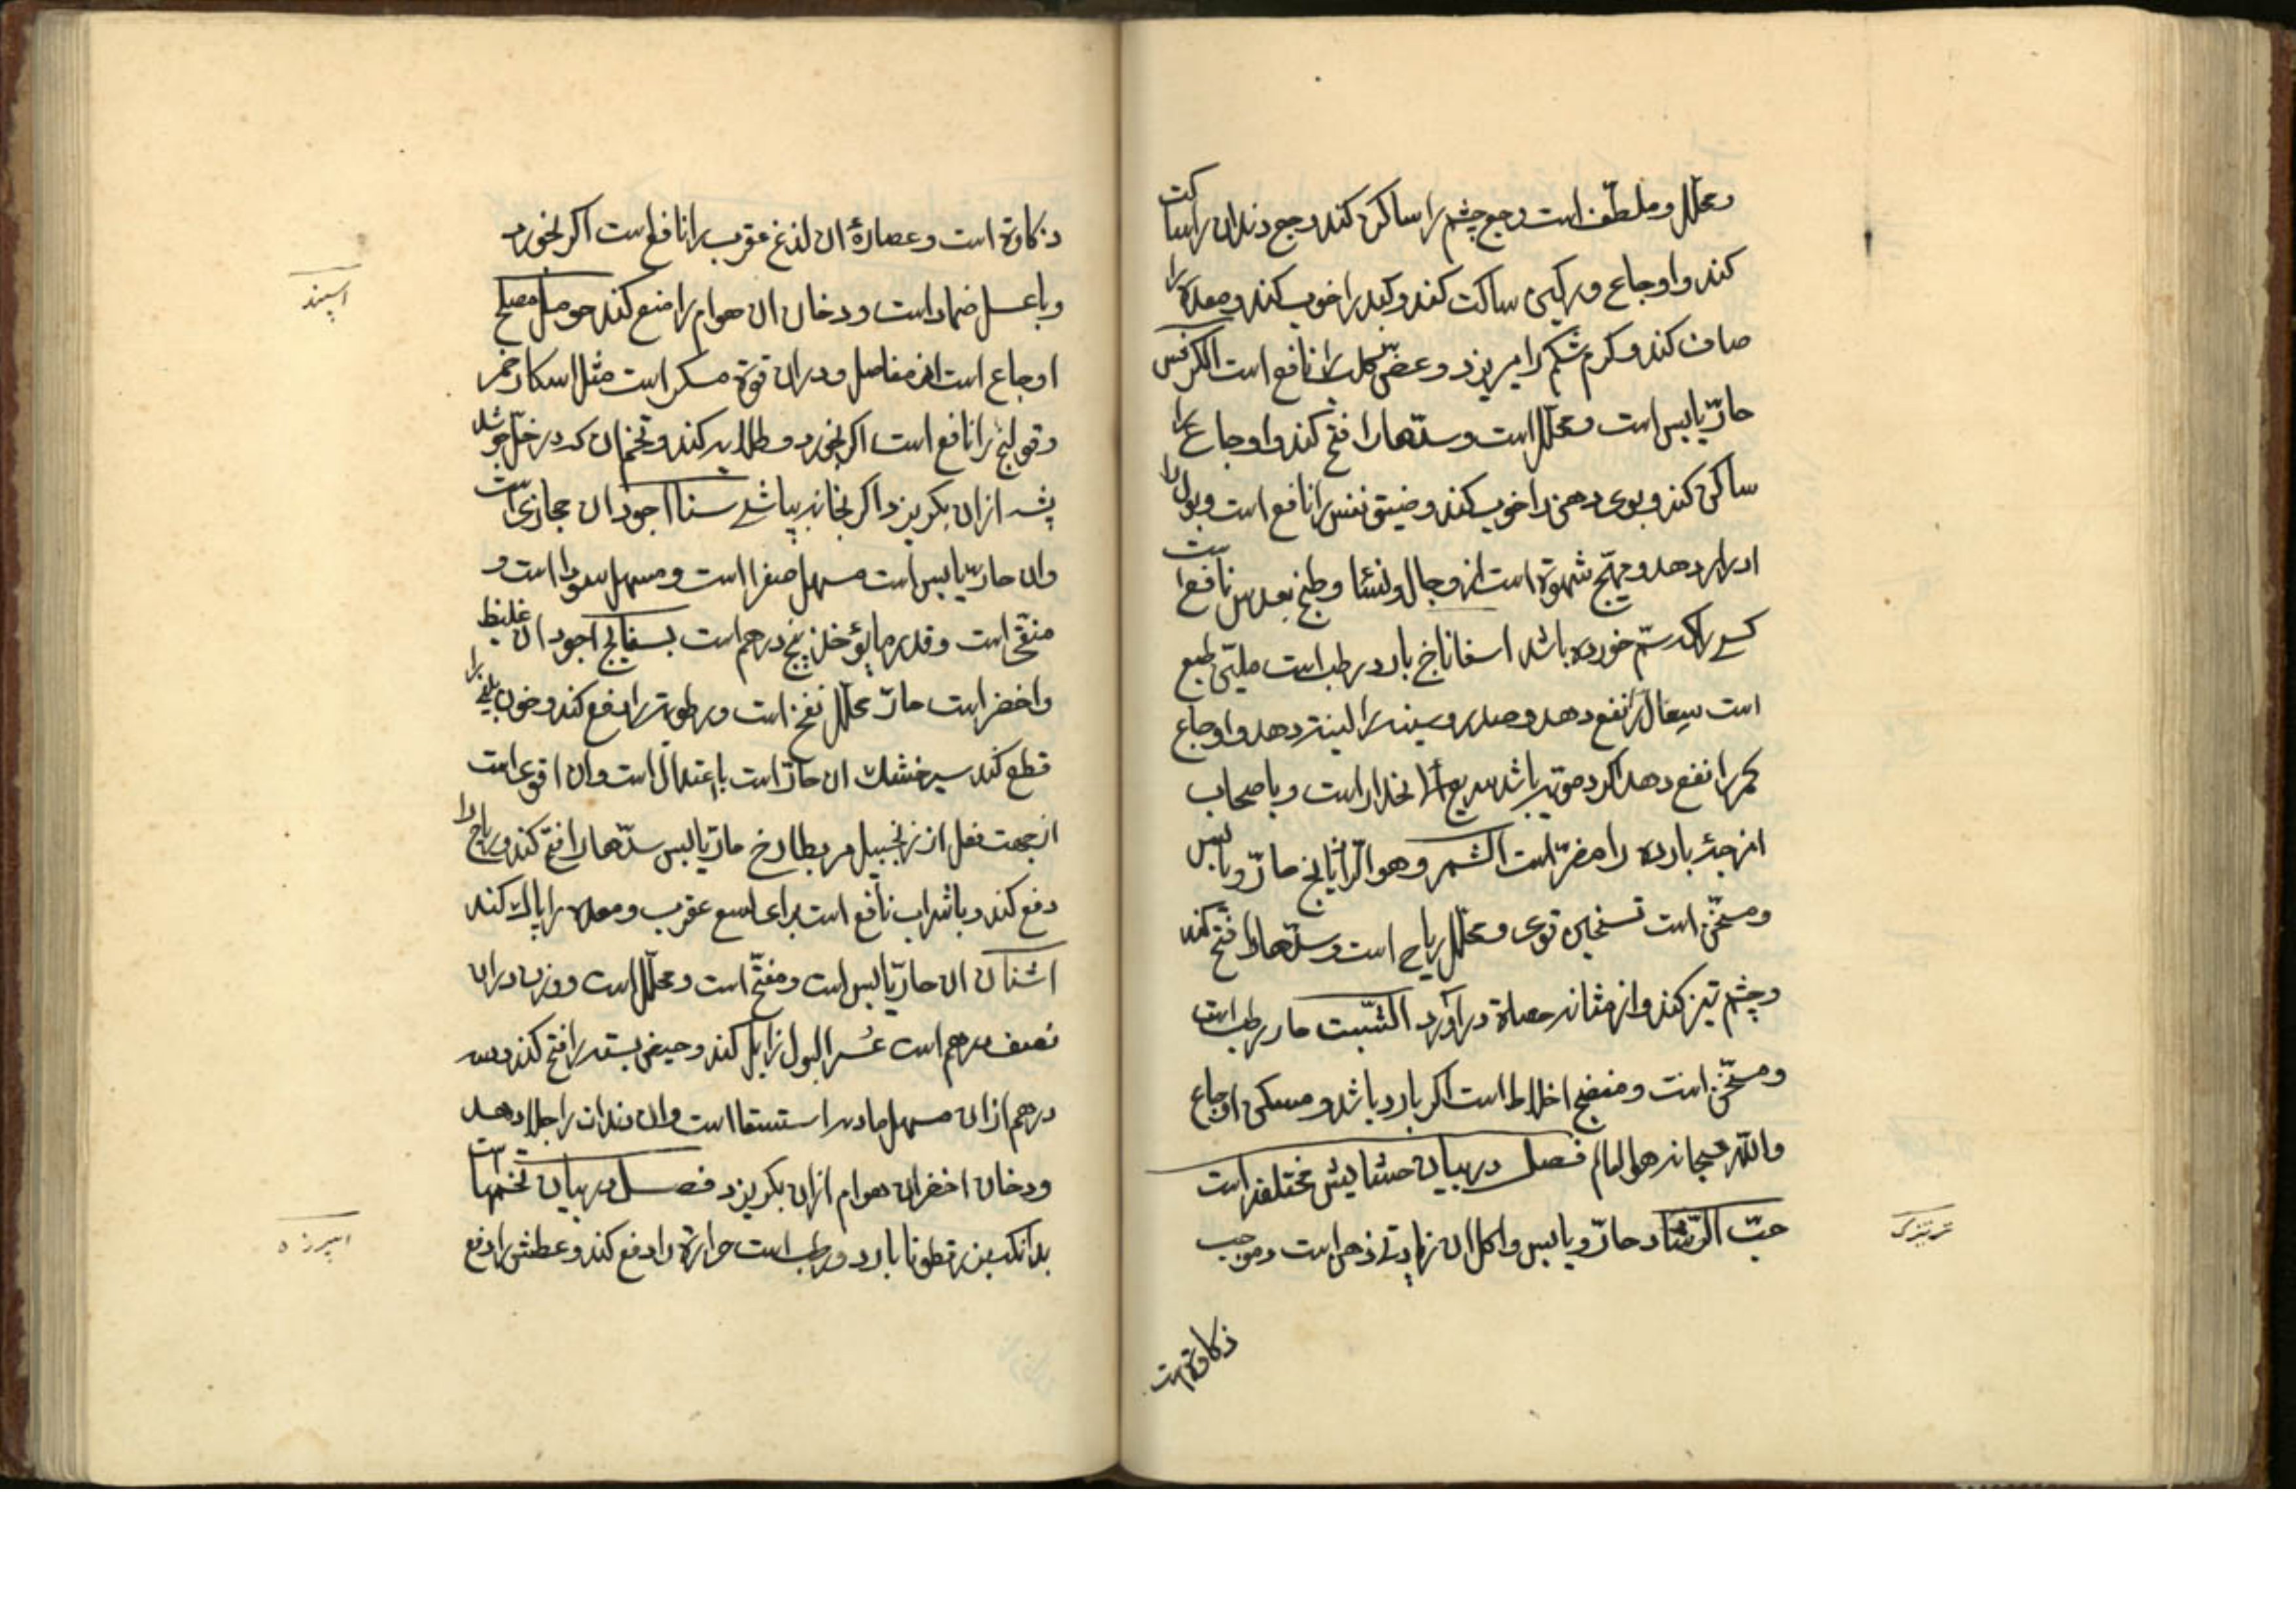 ومحلل وملطف است وجع چشم را ساکن کند وجع دندان را ساکت
کند و اوجاع ورکین ساکت کند و کبد را خوب کند و معده را
صاف کند و کرم شکم را میریزد و عض کلب را نافع است الکرفس
حارّ یابس است و محلل است و سدّها را فتح کند و اوجاع را
ساکن کند و بوی دهن را خوب کند و ضیق نفس را نافع است و بول را
ادرار دهد و مهیّج شهوة است از رجال و نسا و طبخ نافع است
کسی را که سمّ خورده باشد اسفاناخ بارد رطب است ملیّن طبع
است سعال را نفع دهد و صدر و سینه را لینة دهد و اوجاع
کمر را نفع دهد اکر دمویّه باشد سریع انحدار است و باصحاب
امزجهٔ بارده را مضرّ است الشمر وهو الرازیانج حارّ و یابس
ومسخّن است تسخین قوی و محلل ریاح است و سدّها را فتح کند
و چشم تیز کند و از مثانه حصاة درآورد الشّبت حار رطب است
ومسخّن است و منضج اخلاط است اکر بارد باشد و مسکن اوجاع
والله سبحانه هو العالم فصل در بیان حشایش مختلفه است
حبّ الرّشاد حارّ و یابس و اکل ان زیادتی ذهن است و موجب
ذکاوة است
تره تیزک
ذکاوة است و عصارهٔ ان لذغ عقرب را نافع است اکر بخورد
و با عسل ضماد است و دخان ان هوام را منع کند حرمل مصلح
اوجاع است از مفاصل و دران قوّة مسکر است مثل اسکار خمر
و قولنج را نافع است اکر بخورد و طلا به کند و تخم ان که در خلّ جوشد
پشه ازان بکریزد اکر بخانه بپاشد سنا اجود ان حجازی است
وان حارّ یابس است مسهل صفرا است و مسهل سودا است و
منقّی است و قدر مایؤخذ پنج درهم است بسفایج اجود ان غلیظ
و اخضر است حارّ محلل نفخ است و رطوبة را دفع کند و خون بلغمی را
قطع کند سیر خشک ان حارّ است باعتدال است وان اقوی است
ازجهت فعل از زنجبیل مر بطارخ حارّ یابس سدّها را فتح کند و ریاح را
دفع کند و با شراب نافع است برای لسع عقرب و معده را پاک کند
اشنان ان حارّ یابس است و مفتّح است و محلل است و وزن دران
نصف درهم است عسر البول زایل کند و حیض بسته را فتح کند و سه
درهم ازان مسهل ماده استسقا است وان دندان را جلا دهد
و دخان اخضران هوام ازان بکریزد فصل در بیان تخمها است
بدانکه بزر قطونا بارد و رطب است حرارة را دفع کند و عطش را دفع
اسپند
اسپرزه